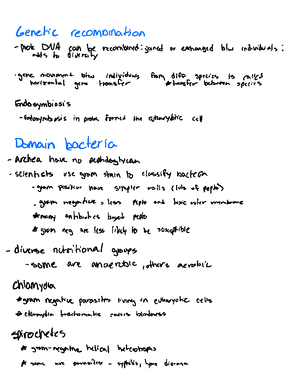 Genetic recombination
- prok DNA can be recombined: joined or exchanged b/w individuals;
adds to diversity
- gene movement b/w individuals from diff species is called
horizontal gene transfer *transfer between species
Endosymbiosis
- Endosymbiosis in proks formed the eukaryotic cell
Domain bacteria
- Archea have no peptidoglycan
- scientists use gram stain to classify bacteria
- gram positive have simpler walls (lots of pepto)
- gram negative = less pepto and have outer membrane
*many antibiotics target pepto
* gram neg are less likely to be susceptible
- diverse nutritional groups
- some are anaerobic, others aerobic
Chlamydia
* gram negative parasites living in eukaryotic cells
* chlamydia trachomatis causes blindness
spirochetes
* gram-negative helical heterotrophs
* some are parasites - syphilis, lyme disease